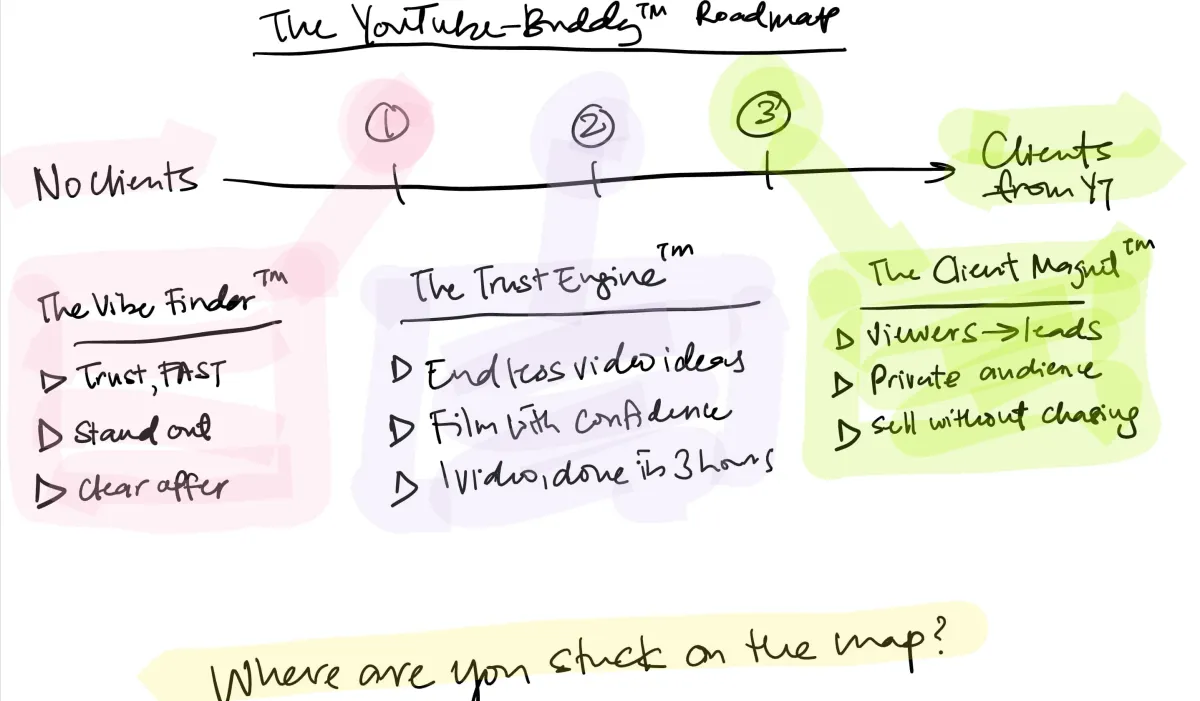 The YouTube-Buddy™ Roadmap
1
2
3
No clients
Clients
from YT
The Vibe Finder™
Trust, FAST
Stand out
Clear offer
The Trust Engine™
Endless video ideas
Film with confidence
1 video, done in 3 hours
The Client Magnet™
Viewers → leads
Private audience
Sell without chasing
Where are you stuck on the map?